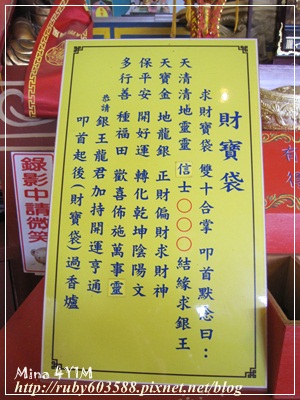 財寶袋
求財寶袋 雙十合掌 叩首默念曰：
天清清地靈靈 信士〇〇〇 結緣求銀王
天寶金 地龍銀 正財偏財求財神
保平安 開好運 轉化乾坤陰陽文
多行善 種福田 歡喜佈施萬事靈
恭請 銀王龍君加持開運亨通
叩首起後(財寶袋)過香爐
錄影中請微笑
Mina 4YIM
http://ruby603588.pixnet.net/blog